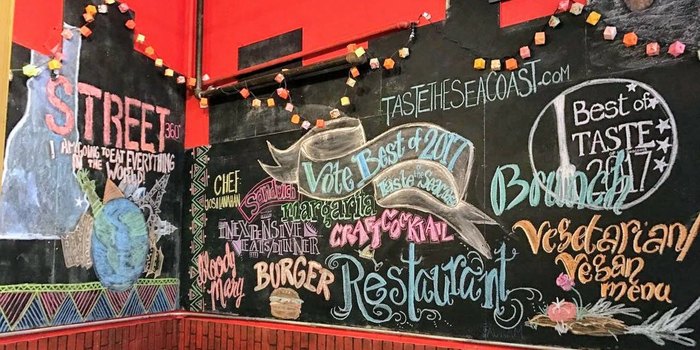 STREET
360°
! I AM GOING TO EAT EVERYTHING
IN THE WORLD
TASTETHESEACOAST.COM
CHEF
Sandwich
margarita
INEXPENSIVE
EATS/DINNER
Bloody
Mary
BURGER
Vote Best of 2017
Taste the Seacoast
CRAFT COCKTAIL
Restaurant
Best of
TASTE
2017
Brunch
Vegetarian/
Vegan
menu